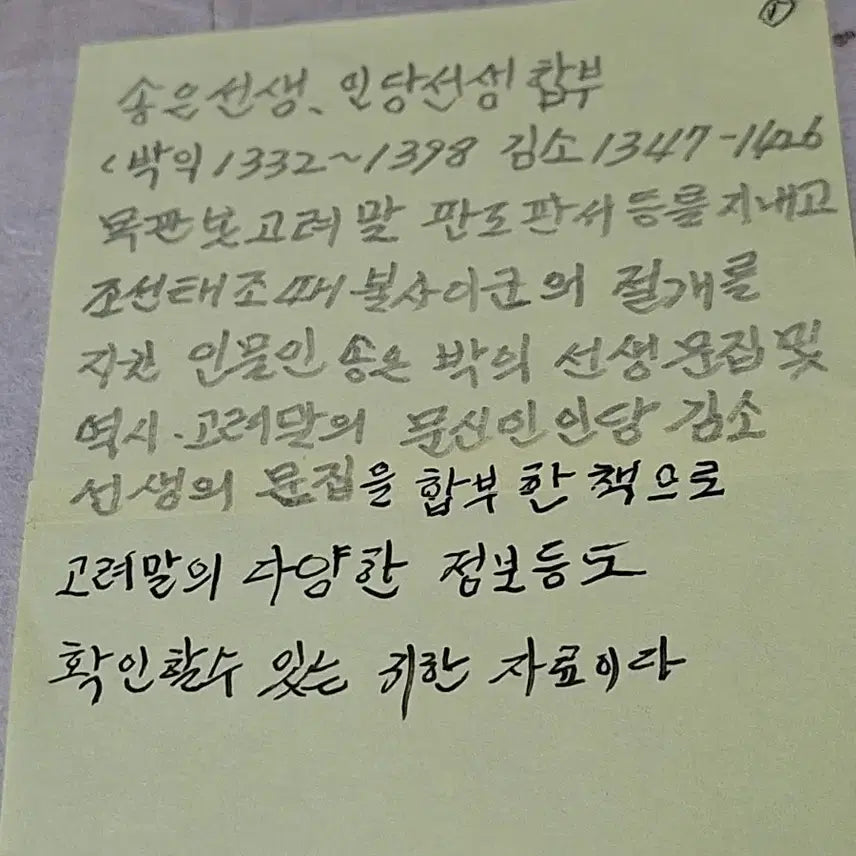 ①
송은선생、인당선생합부
<박익1332~1398 김소1347-1426
목판본고려말 판도판서등를지내고
조선태조때불사이군의 절개를
지킨 인물인 송은 박익 선생문집및
역시.고려말의 문신인인당 김소
선생의 문집을 합부한책으로
고려말의 다양한 정보등도
확인할수 있는 귀한 자료이다